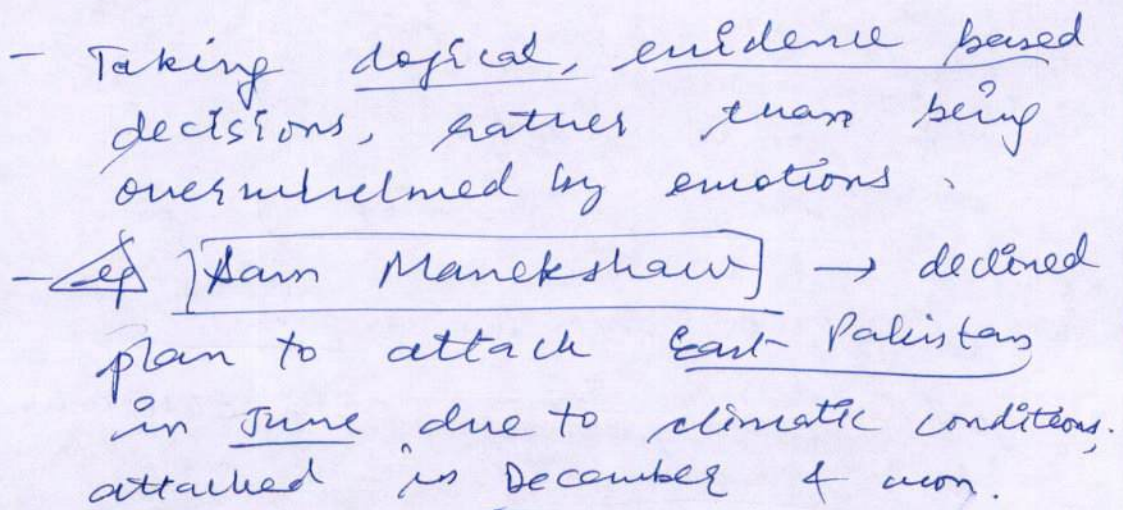 - Taking logical, evidence based
decisions, rather than being
overwhelmed by emotions.
- eg Sam Manekshaw → declined
plan to attack East Pakistan
in June due to climatic conditions,
attacked in December & won.